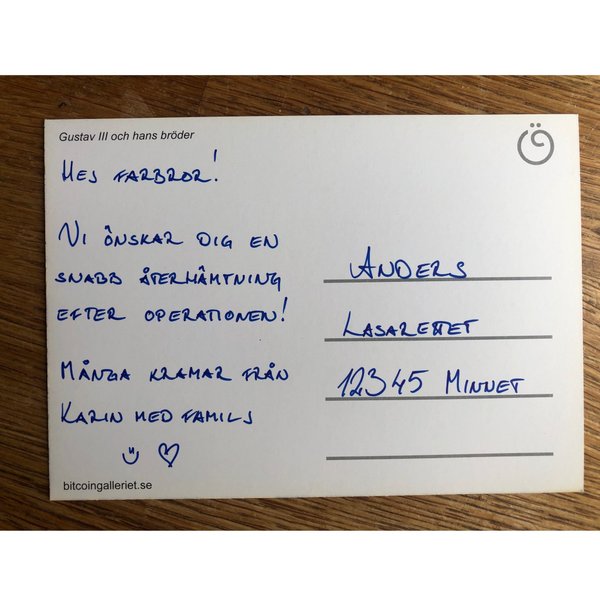 Gustav III och hans bröder
HEJ FARBROR!
VI ÖNSKAR DIG EN
SNABB ÅTERHÄMTNING
EFTER OPERATIONEN!
MÅNGA KRAMAR FRÅN
KARIN MED FAMILJ
bitcoingalleriet.se
ANDERS
LASARETTET
12345 MINNET